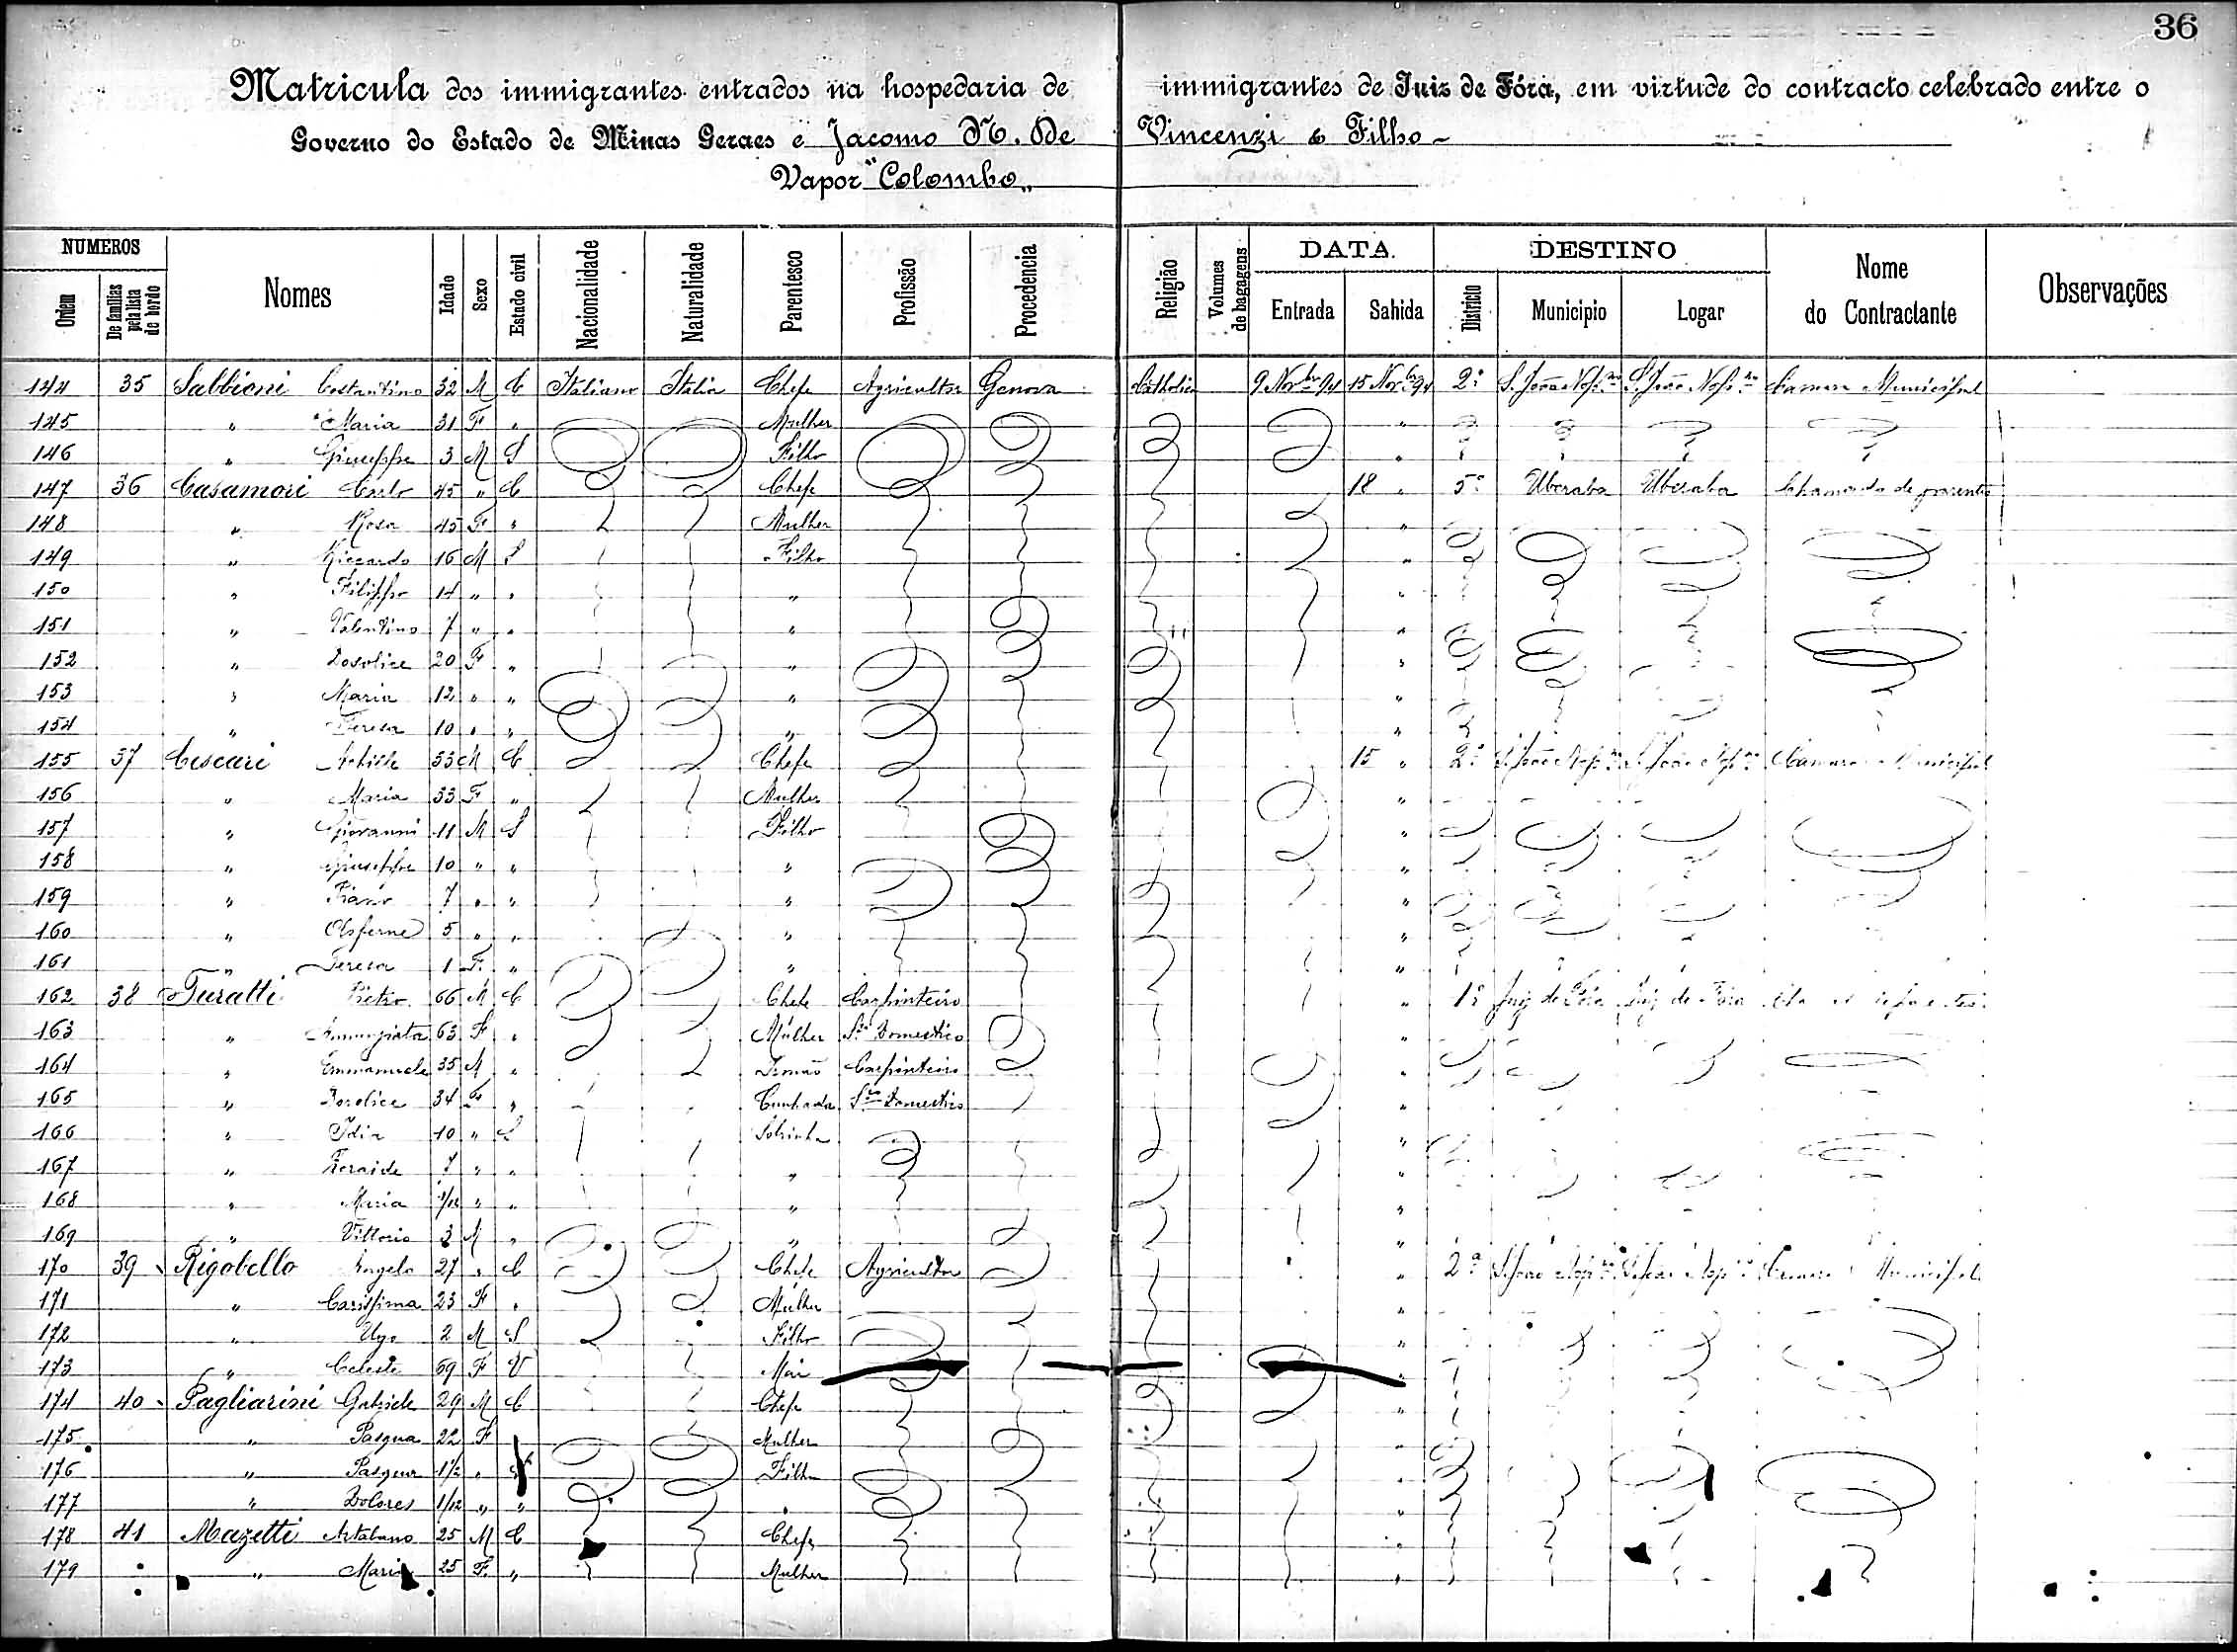 36
Matricula dos immigrantes entrados na hospedaria de immigrantes de Juiz de Fóra, em virtude do contracto celebrado entre o
Governo do Estado de Minas Geraes e Jacomo N. De Vincenzi & Filho
Vapor "Colombo"
NUMEROS DATA. DESTINO
Ordem De familias pela lista de bordo Nomes Idade Sexo Estado civil Nacionalidade Naturalidade Parentesco Profissão Procedencia Religião Volumes de bagagens Entrada Sahida Districto Municipio Logar Nome do Contractante Observações
144 35 Sabbioni Costantino 32 M C Italiano Italia Chefe Agricultor Genova Catholica 9 Novbr 94 15 Novbr 94 2º S. João Nop.no S. João Nop.no Camara Municipal
145 " Maria 31 F " Mulher "
146 " Giuseppe 3 M S Filho "
147 36 Casamori Carlo 45 " C Chefe 18 " 5º Uberaba Uberaba Chamado de parente
148 " Rosa 45 F " Mulher "
149 " Riccardo 16 M S Filho "
150 " Filippo 14 " " " "
151 " Valentino 7 " " " "
152 " 20 F " " "
153 " Maria 12 " " " "
154 " Teresa 10 " " " "
155 37 Cescari Achille 33 M C Chefe 15 " 2º S. João Nop.no S. João Nop.no Camara Municipal
156 " Maria 33 F " Mulher "
157 " Giovanni 11 M S Filho "
158 " Giuseppe 10 " " " "
159 " 7 " " " "
160 " 5 " " " "
161 " Teresa 1 F " " "
162 38 Turatti Pietro 66 M C Chefe Carpinteiro " 1º Juiz de Fóra Juiz de Fóra
163 " Annunziata 63 F " Mulher Sº Domestico "
164 " Emmanuele 35 M " Irmão Carpinteiro "
165 " 34 F " Cunhada Sço Domestico "
166 " Idia 10 " S Sobrinha "
167 " 7 " " " "
168 " Maria 1/12 " " " "
169 " Vittorio 3 M " " "
170 39 Rigobello Angelo 27 " C Chefe Agricultor " 2º S. João Nop.no S. João Nop.no Camara Municipal
171 " Carissima 23 F " Mulher "
172 " Ugo 2 M S Filho "
173 " Celeste 69 F V Mai "
174 40 Pagliarini Gabriele 29 M C Chefe "
175 " Pasqua 22 F " Mulher "
176 " 1½ " Filha
177 " Dolores 1/12 " " "
178 41 Mazetti Artabano 25 M C Chefe "
179 " Maria 25 F " Mulher "